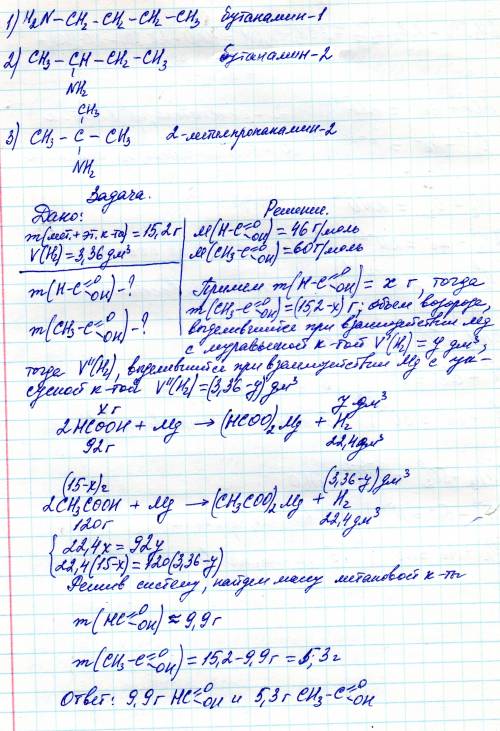 1) H₂N–CH₂–CH₂–CH₂–CH₃ бутанамин-1
2) CH₃–CH–CH₂–CH₃ бутанамин-2
NH₂
CH₃
3) CH₃–C–CH₃ 2-метилпропанамин-2
NH₂
Задача.
Дано:
m(мет.+эт. к-та)=15,2г
V(H₂)=3,36дм³
m(H–C=O OH)–?
m(CH₃–C=O OH)–?
Решение.
M(H–C=O OH)=46г/моль
M(CH₃–C=O OH)=60г/моль
Примем m(H–C=O OH)=x г, тогда
m(CH₃–C=O OH)=(15,2–x)г; объем водорода,
выделившийся при взаимодействии Mg
с муравьиной к-той V'(H₂)=y дм³,
тогда V''(H₂), выделившийся при взаимодействии Mg с ук-
сусной к-той V''(H₂)=(3,36–y)дм³
xг y дм³
2HCOOH + Mg → (HCOO)₂Mg + H₂
92г 22,4дм³
(15-x)г (3,36-y)дм³
2CH₃COOH + Mg → (CH₃COO)₂Mg + H₂
120г 22,4дм³
{22,4x=92y
22,4(15-x)=120(3,36-y)
Решив систему, найдем массу метановой к-ты
m(HC=O OH)≈9,9г
m(CH₃–C=O OH)=15,2–9,9г=5,3г
Ответ: 9,9г HC=O OH и 5,3г CH₃–C=O OH